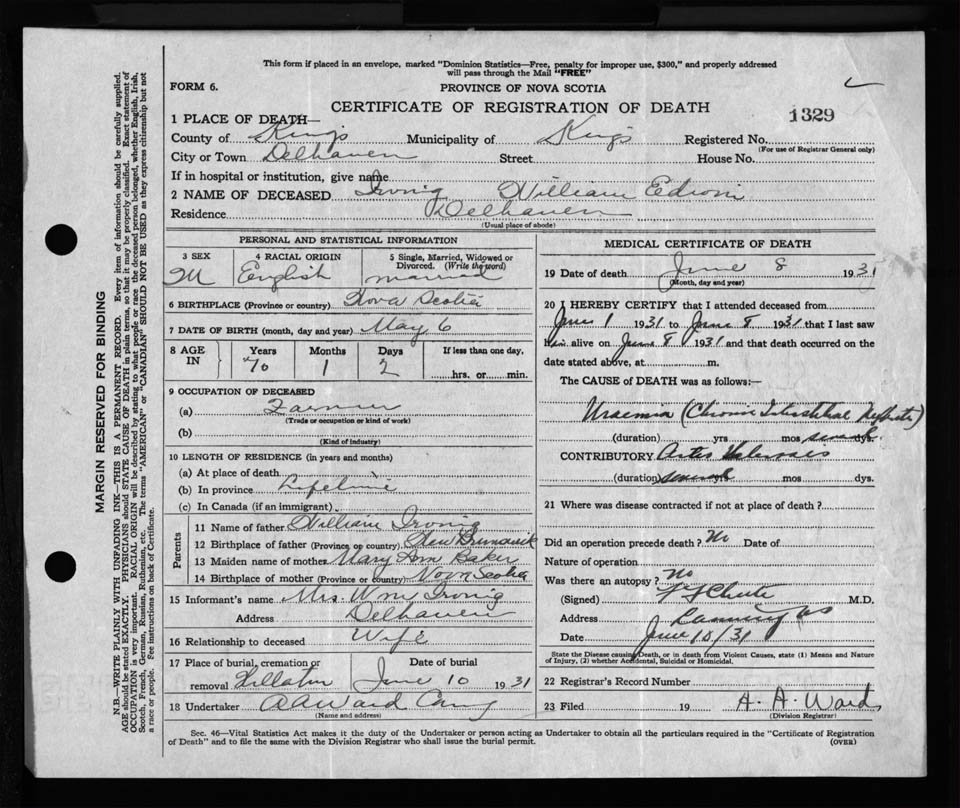 This form if placed in an envelope, marked "Dominion Statistics—Free, penalty for improper use, $300," and properly addressed
will pass through the Mail "FREE"
FORM 6.
PROVINCE OF NOVA SCOTIA
CERTIFICATE OF REGISTRATION OF DEATH
1329
1 PLACE OF DEATH—
County of Kings Municipality of Kings Registered No.
(For use of Registrar General only)
City or Town Delhaven Street House No.
If in hospital or institution, give name
2 NAME OF DECEASED Irving William
Residence Delhaven
(Usual place of abode)
PERSONAL AND STATISTICAL INFORMATION
3 SEX M
4 RACIAL ORIGIN English
5 Single, Married, Widowed or Divorced. (Write the word) married
6 BIRTHPLACE (Province or country) Nova Scotia
7 DATE OF BIRTH (month, day and year) May 6
8 AGE IN Years 70 Months 1 Days 2 If less than one day, hrs. or min.
9 OCCUPATION OF DECEASED
(a) Farmer
(Trade or occupation or kind of work)
(b)
(Kind of industry)
10 LENGTH OF RESIDENCE (in years and months)
(a) At place of death
(b) In province Lifetime
(c) In Canada (if an immigrant)
Parents
11 Name of father William Irving
12 Birthplace of father (Province or country) New Brunswick
13 Maiden name of mother Mary Ann Baker
14 Birthplace of mother (Province or country) Nova Scotia
15 Informant's name Mrs. Wm Irving
Address Delhaven
16 Relationship to deceased Wife
17 Place of burial, cremation or removal Date of burial June 10 1931
18 Undertaker A A Ward
(Name and address)
MEDICAL CERTIFICATE OF DEATH
19 Date of death June 8 1931
(Month, day and year)
20 I HEREBY CERTIFY that I attended deceased from
June 1 1931 to June 8 1931 that I last saw
him alive on June 8 1931 and that death occurred on the
date stated above, at m.
The CAUSE of DEATH was as follows:—
Uraemia (Chronic Interstitial Nephritis)
(duration) yrs mos several dys.
CONTRIBUTORY Arterio Sclerosis
(duration) several yrs. mos dys.
21 Where was disease contracted if not at place of death?
Did an operation precede death? No Date of
Nature of operation
Was there an autopsy? No
(Signed) Chute M.D.
Address Canning NS
Date June 10/31
State the Disease causing Death, or in death from Violent Causes, state (1) Means and Nature
of Injury, (2) whether Accidental, Suicidal or Homicidal.
22 Registrar's Record Number
23 Filed 19 A. A. Ward
(Division Registrar)
Sec. 46—Vital Statistics Act makes it the duty of the Undertaker or person acting as Undertaker to obtain all the particulars required in the "Certificate of Registration
of Death" and to file the same with the Division Registrar who shall issue the burial permit.
(OVER)
MARGIN RESERVED FOR BINDING
N.B.—WRITE PLAINLY WITH UNFADING INK—THIS IS A PERMANENT RECORD. Every item of information should be carefully supplied.
AGE should be stated EXACTLY. PHYSICIANS should STATE CAUSE OF DEATH in plain terms, so that it may be properly classified. Exact statement of
OCCUPATION is very important. RACIAL ORIGIN will be described by stating to what people or race the deceased person belonged, whether English, Irish,
Scotch, French, German, Russian, Ruthenian, etc. The terms "AMERICAN" or "CANADIAN" SHOULD NOT BE USED as they express citizenship but not
a race or people. See instructions on back of Certificate.